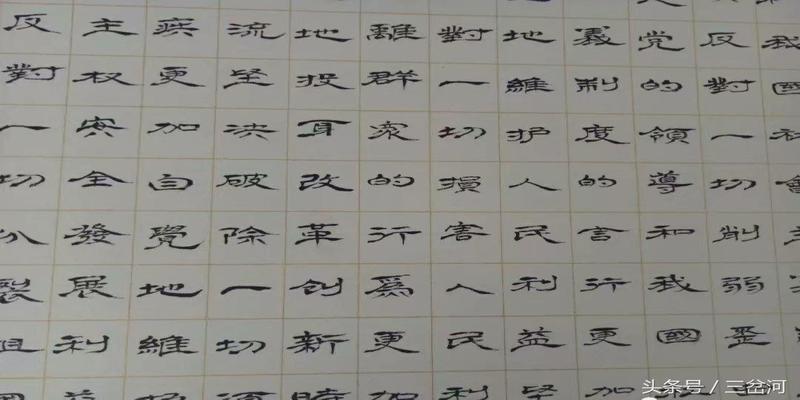 我國社會
反對一切削弱歪
党的領導和我國
義制度的言行更加
地維护人民利益堅
對一切損害人民利
離群衆的行爲更加
地投身改革創新時
流堅決破除一切
疾更加自覺地維
主权安全發展利
反對一切分裂祖
头条号 / 三岔河